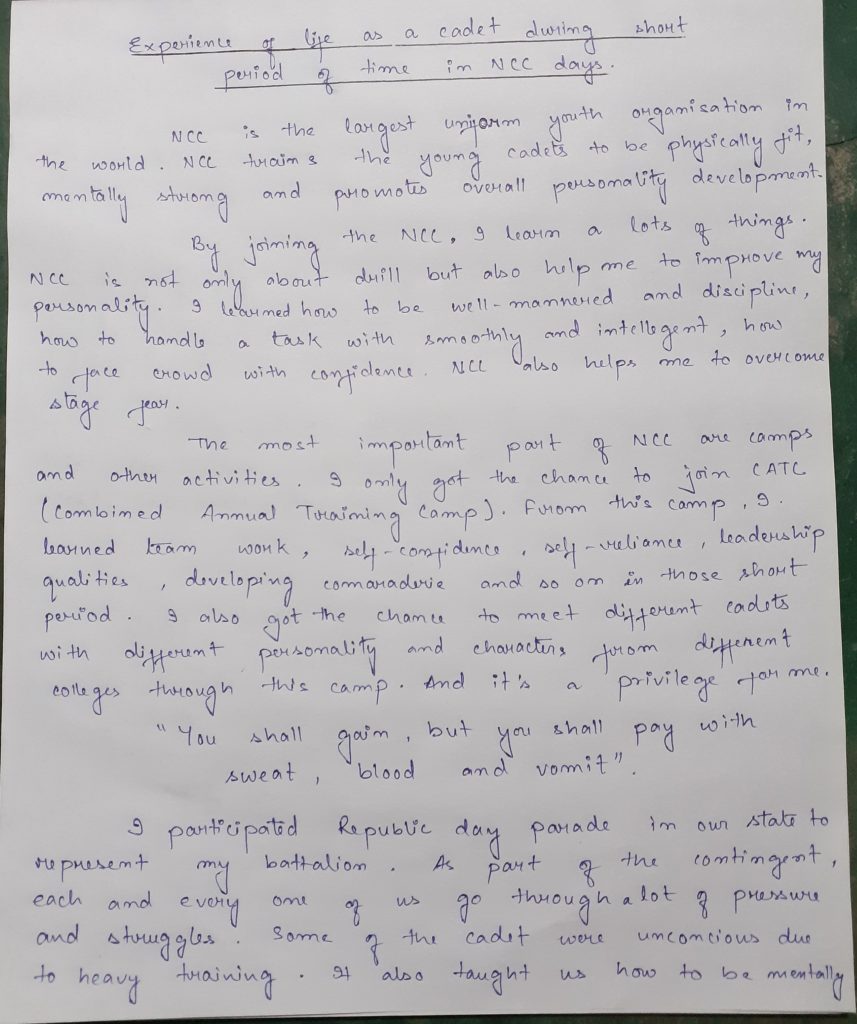 Experience of life as a cadet during short
period of time in NCC days.
NCC is the largest uniform youth organisation in
the world. NCC trains the young cadets to be physically fit,
mentally strong and promotes overall personality development.
By joining the NCC, I learn a lots of things.
NCC is not only about drill but also help me to improve my
personality. I learned how to be well-mannered and discipline,
how to handle a task with smoothly and intellegent, how
to face crowd with confidence. NCC also helps me to overcome
stage fear.
The most important part of NCC are camps
and other activities. I only got the chance to join CATC
(Combined Annual Training Camp). From this camp, I.
learned team work, self-confidence, self-reliance, leadership
qualities, developing comaraderie and so on in those short
period. I also got the chance to meet different cadets
with different personality and characters from different
colleges through this camp. And it's a privilege for me.
"You shall gain, but you shall pay with
sweat, blood and vomit".
I participated Republic day parade in our state to
represent my battalion. As part of the contingent,
each and every one of us go through a lot of pressure
and struggles. Some of the cadet were unconcious due
to heavy training. It also taught us how to be mentally